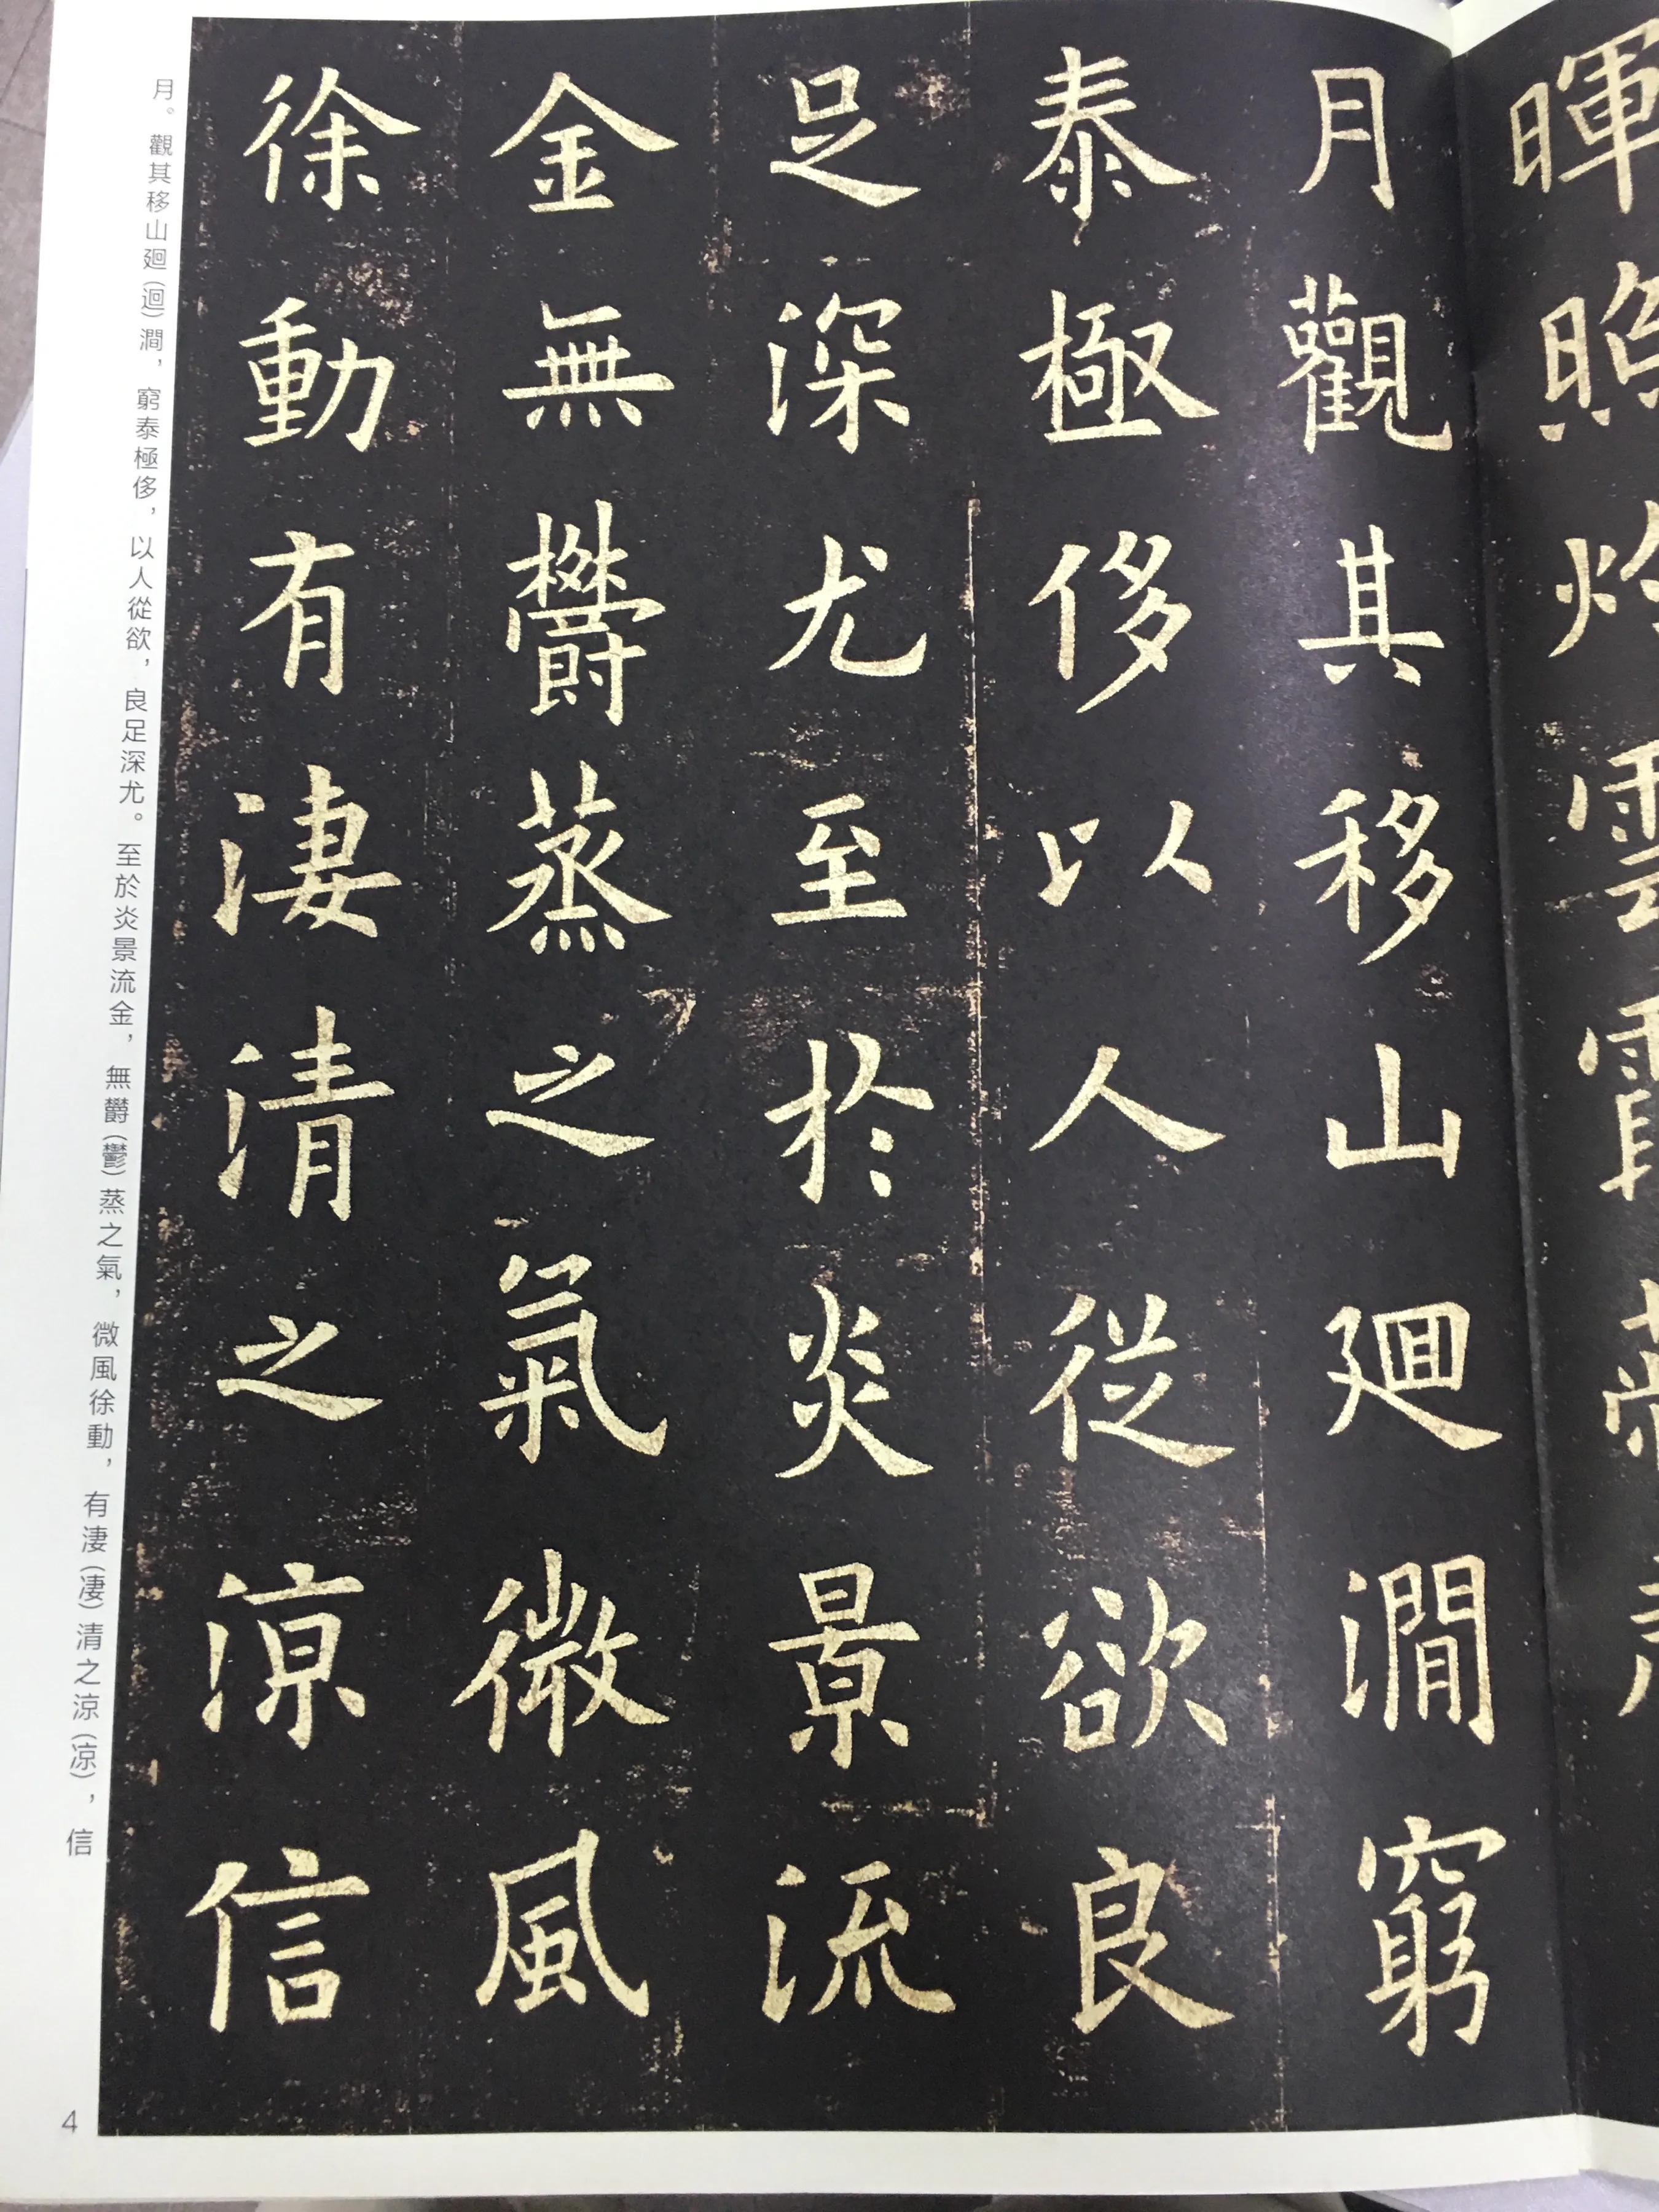 暉照灼雲霞蔽虧日
月觀其移山廻澗窮
泰極侈以人從欲良
足深尤至於炎景流
金無欝蒸之氣微風
徐動有淒清之涼信
月。觀其移山廻(迴)澗，窮泰極侈，以人從欲，良足深尤。至於炎景流金，無欝(鬱)蒸之氣，微風徐動，有淒(凄)清之涼(凉)，信
4